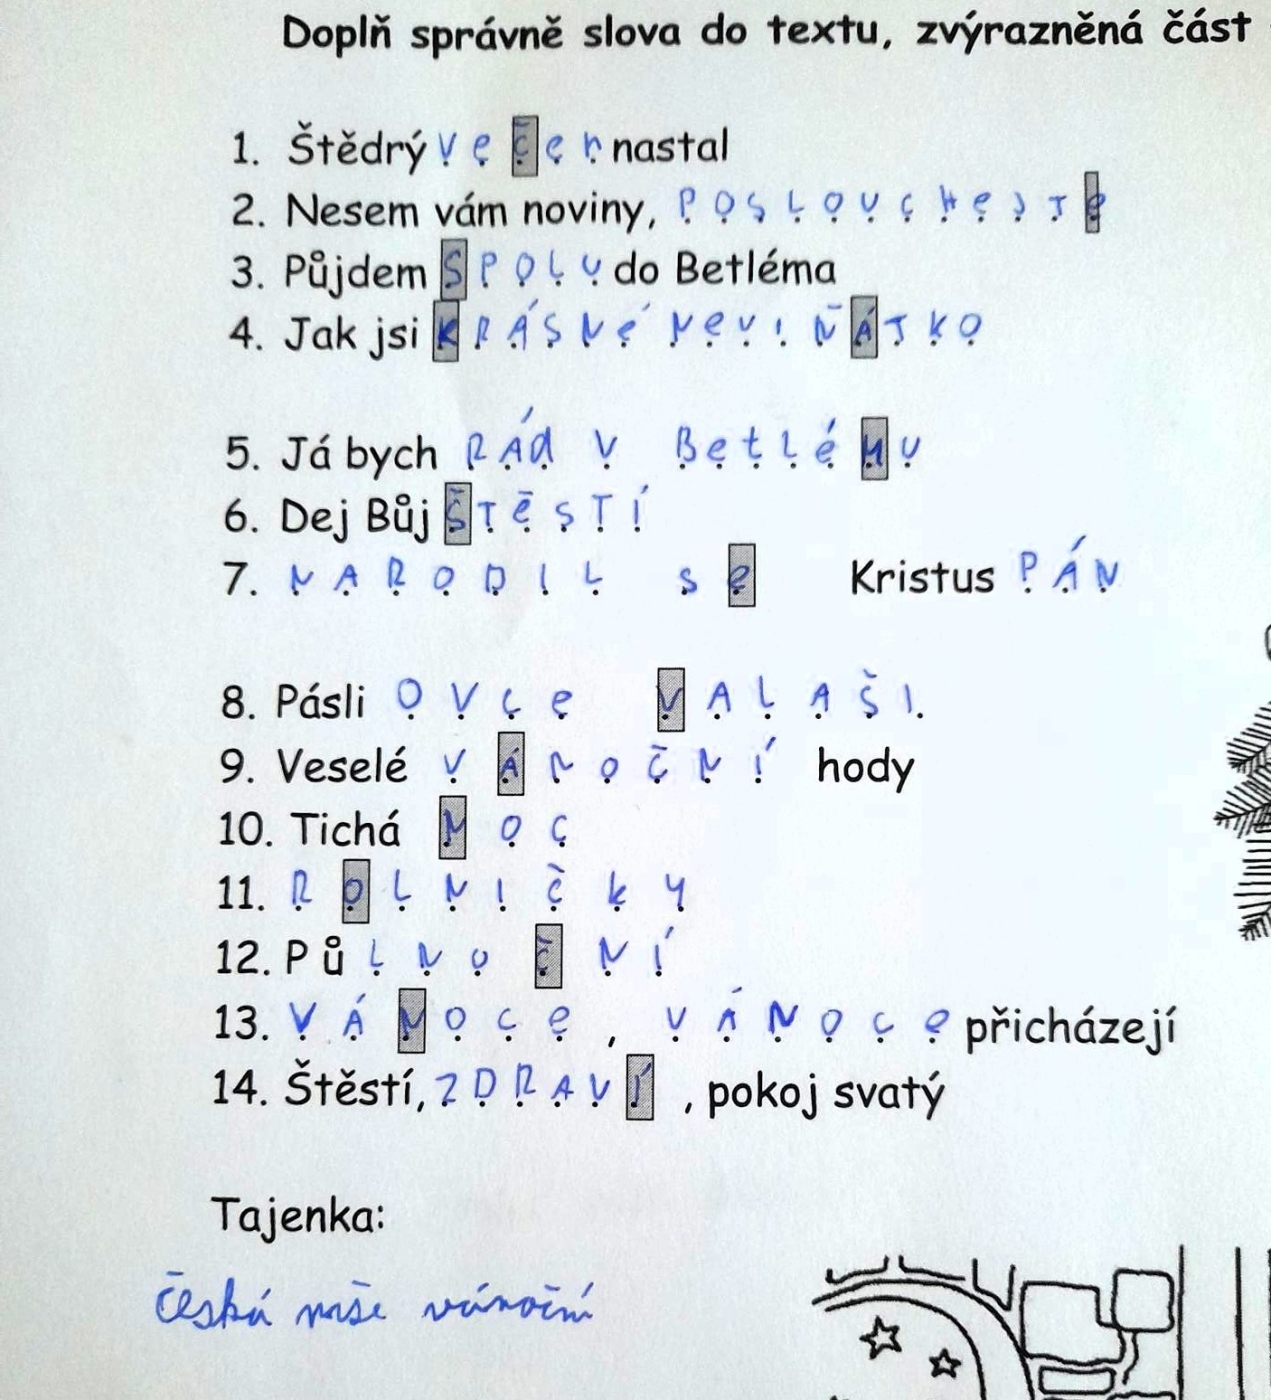 Doplň správně slova do textu, zvýrazněná část
1. Štědrý večer nastal
2. Nesem vám noviny, POSLOUCHEJTe
3. Půjdem SPOLU do Betléma
4. Jak jsi KRÁSNé NeVIŇÁTKO
5. Já bych RÁd V BetléMU
6. Dej Bůj ŠTěSTÍ
7. NARODIL Se Kristus PÁN
8. Pásli OVCe VALAŠI.
9. Veselé VÁNOČNÍ hody
10. Tichá NOC
11. ROLNIČkY
12. PůLNOČNÍ
13. VÁNOCe, VÁNOCe přicházejí
14. Štěstí, ZDRAVÍ, pokoj svatý
Tajenka:
Česká mše vánoční